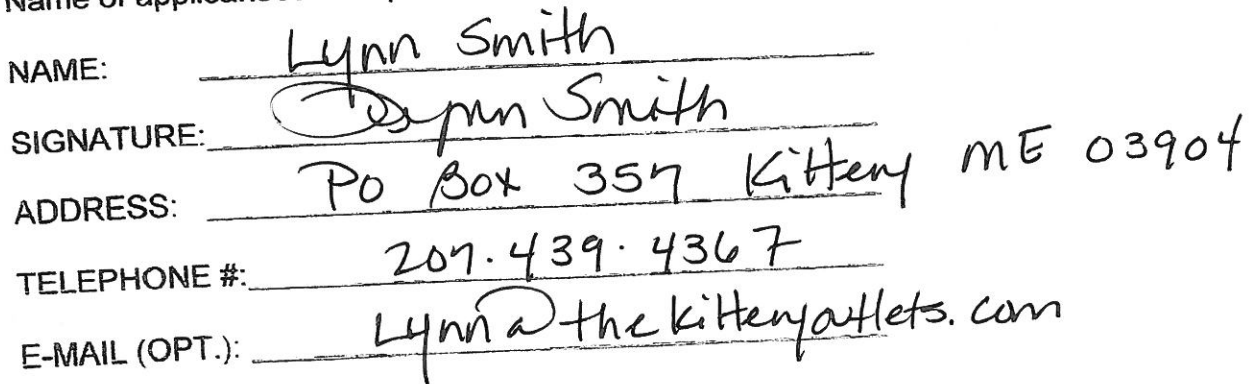 NAME: Lynn Smith
SIGNATURE: Lynn Smith
ADDRESS: PO Box 357 Kittery ME 03904
TELEPHONE #: 207.439.4367
E-MAIL (OPT.): Lynn@thekitteryoutlets.com